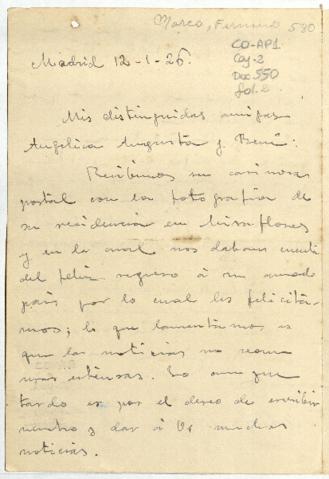 Marco, Fernando 530
CO-AP1
Caj-2
Doc 550
fol. 2
Madrid 12-1-26.
Mis distinguidas amigas
Angélica Augusta y René:
Recibimos su cariñosa
postal con la fotografía de
su residencia en Miraflores
y en la cual nos daban cuenta
del feliz regreso á su amado
país por lo cual les felicitá-
mos; lo que lamentámos es
que las noticias no sean
más extensas. Lo que
tardo es por el deseo de escribir
mucho y dar á Vs muchas
noticias.